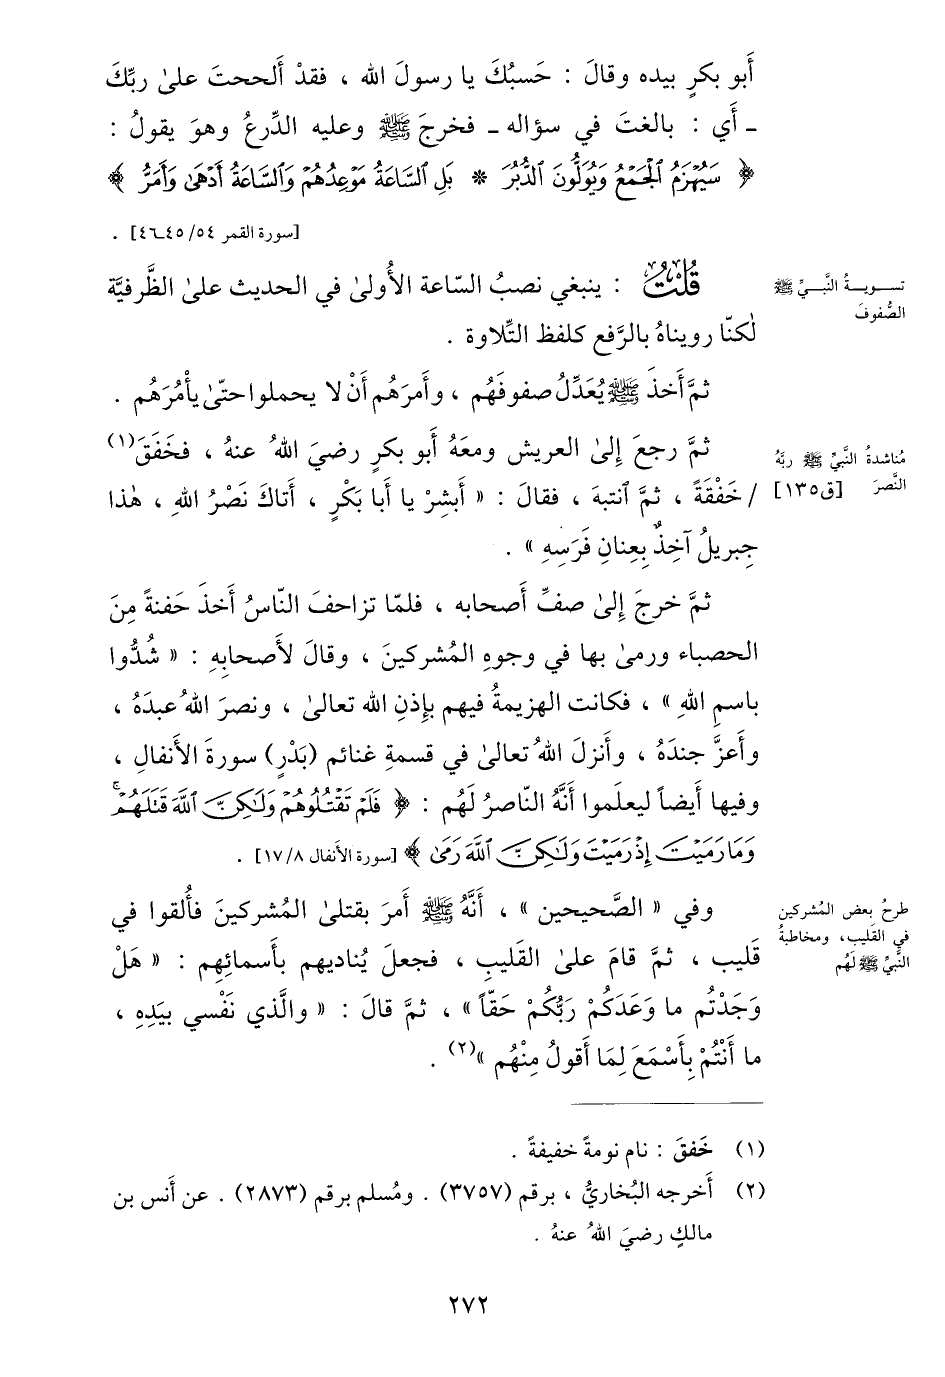 أَبو بكرٍ بيده وقالَ : حَسبُكَ يا رسولَ الله ، فقدْ أَلححتَ علىٰ ربِّكَ
ـ أَي : بالغتَ في سؤاله ـ فخرجَ ﷺ وعليه الدِّرعُ وهوَ يقولُ :
﴿ سَيُهْزَمُ ٱلْجَمْعُ وَيُوَلُّونَ ٱلدُّبُرَ * بَلِ ٱلسَّاعَةُ مَوْعِدُهُمْ وَٱلسَّاعَةُ أَدْهَىٰ وَأَمَرُّ ﴾
[سورة القمر ٥٤/ ٤٥ـ٤٦] .
قُلْتُ : ينبغي نصبُ السّاعة الأُولىٰ في الحديث علىٰ الظَّرفيَّة
تسـويـةُ النَّبـيِّ ﷺ
الصُّفوفَ
لٰكنّا رويناهُ بالرَّفع كلفظ التِّلاوة .
ثمَّ أَخذَ ﷺ يُعَدِّلُ صفوفَهُم ، وأَمرَهُم أَنْ لا يحملوا حتّىٰ يأْمُرَهُم .
ثمَّ رجعَ إِلىٰ العريش ومعَهُ أَبو بكرٍ رضيَ اللهُ عنهُ ، فخَفَقَ(١)
مُناشدةُ النَّبيِّ ﷺ ربَّهُ
النَّصرَ [ق١٣٥]
/ خَفْقَةً ، ثمَّ ٱنتبهَ ، فقالَ : « أَبشِرْ يا أَبا بَكْرٍ ، أَتاكَ نَصْرُ اللهِ ، هٰذا
جِبريلُ آخِذٌ بِعِنانِ فَرَسِهِ » .
ثمَّ خرجَ إِلىٰ صفِّ أَصحابه ، فلمّا تزاحفَ النّاسُ أَخذَ حَفنةً مِنَ
الحصباء ورمىٰ بها في وجوهِ المُشركينَ ، وقالَ لأَصحابِهِ : « شُدُّوا
باسمِ اللهِ » ، فكانت الهزيمةُ فيهم بإِذنِ الله تعالىٰ ، ونصرَ اللهُ عبدَهُ ،
وأَعزَّ جندَهُ ، وأَنزلَ اللهُ تعالىٰ في قسمةِ غنائم (بَدْرٍ) سورةَ الأَنفالِ ،
وفيها أَيضاً ليعلَموا أَنَّهُ النّاصرُ لَهُم : ﴿ فَلَمْ تَقْتُلُوهُمْ وَلَٰكِنَّ ٱللَّهَ قَتَلَهُمْ ۚ
وَمَا رَمَيْتَ إِذْ رَمَيْتَ وَلَٰكِنَّ ٱللَّهَ رَمَىٰ ﴾ [سورة الأنفال ٨/ ١٧] .
وفي « الصَّحيحين » ، أَنَّهُ ﷺ أَمرَ بقتلىٰ المُشركينَ فأُلقوا في
طرحُ بعض المُشركين
في القَليب، ومخاطبةُ
النَّبيِّ ﷺ لَهُم
قَليب ، ثمَّ قامَ علىٰ القَليبِ ، فجعلَ يُناديهم بأَسمائِهِم : « هَلْ
وَجَدْتُم ما وَعَدَكُمْ رَبُّكُمْ حَقّاً » ، ثمَّ قالَ : « والَّذي نَفْسي بيَدِهِ ،
ما أَنْتُمْ بِأَسْمَعَ لِمَا أَقولُ مِنْهُم »(٢) .
(١) خَفقَ : نام نومةً خفيفةً .
(٢) أَخرجه البُخاريُّ ، برقم (٣٧٥٧) . ومُسلم برقم (٢٨٧٣) . عن أَنس بن
مالكٍ رضيَ اللهُ عنهُ .
٢٧٢